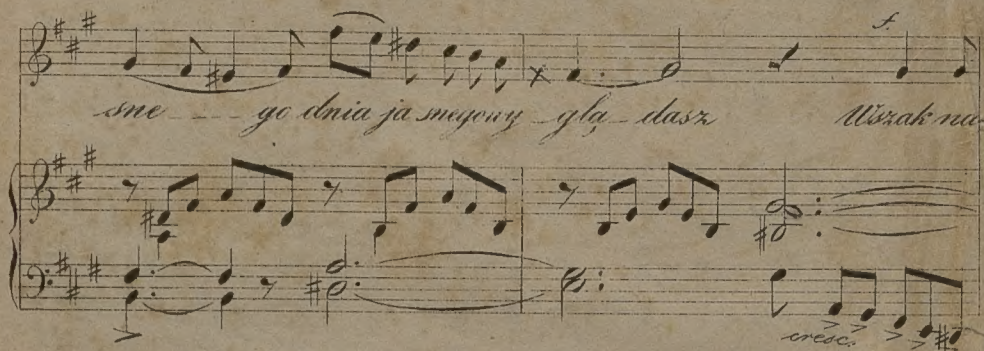 f.
sne --- go dnia ja snegowy - glą - dasz Wszak na-
cresc.